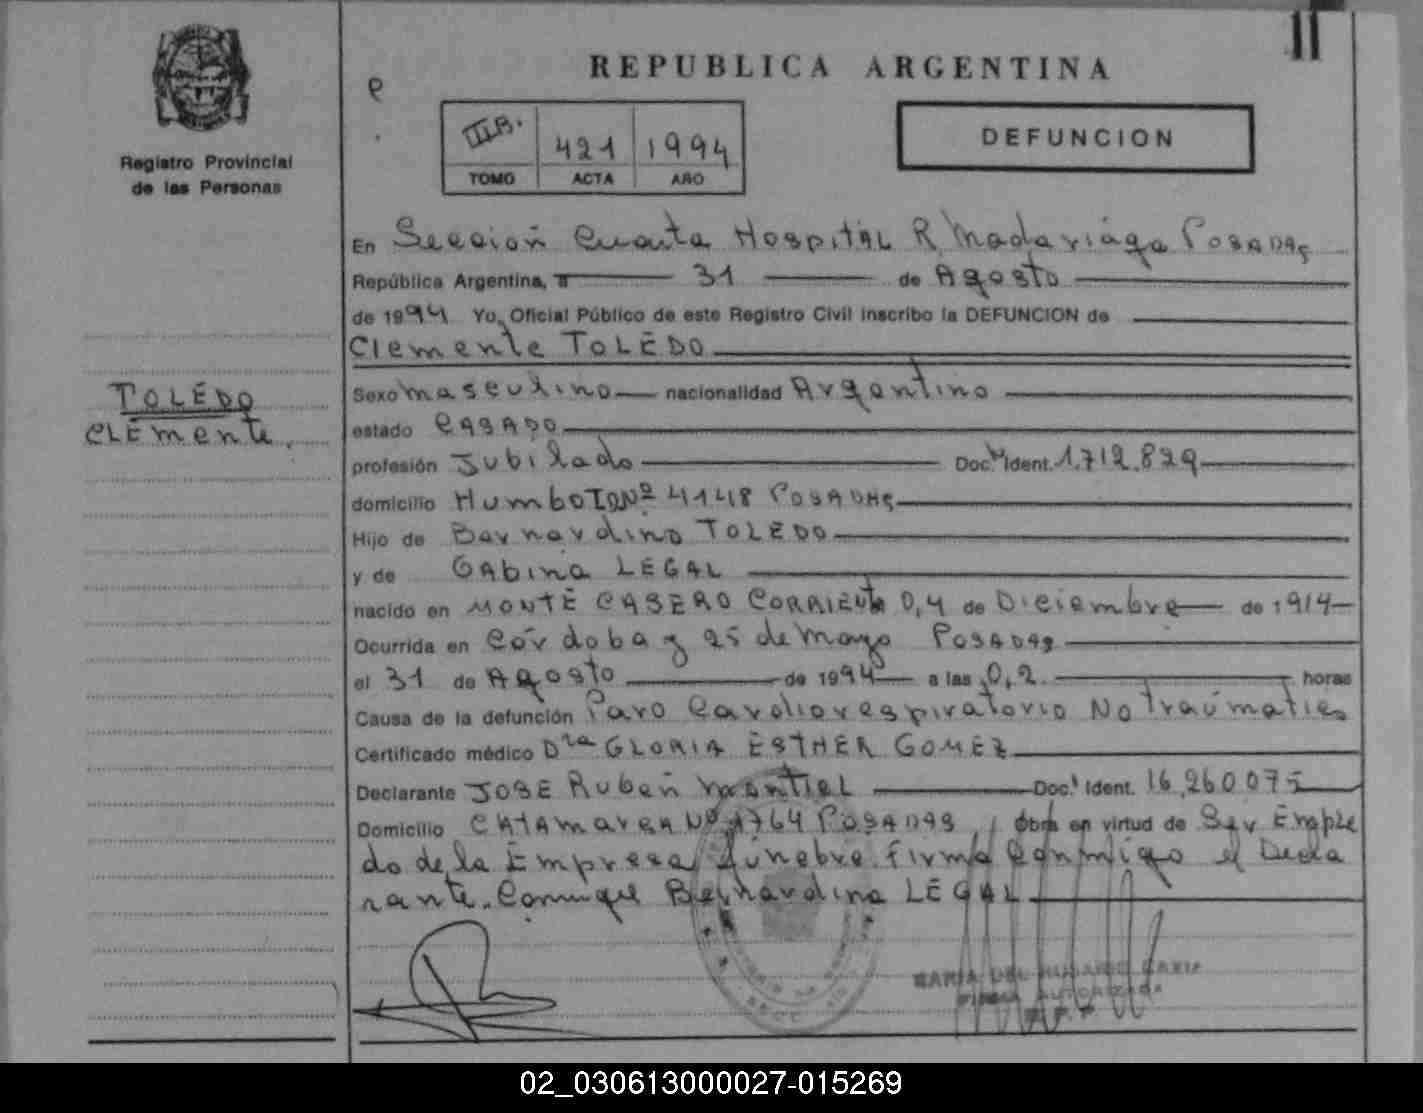 II
REPUBLICA ARGENTINA
Registro Provincial
de las Personas
IIIB. 421 1994
TOMO ACTA AÑO
DEFUNCION
En Sección Cuarta Hospital R Madariaga Posadas
República Argentina, a 31 de Agosto
de 1994 Yo, Oficial Público de este Registro Civil inscribo la DEFUNCION de
Clemente TOLEDO
TOLEDO
CLEmente.
Sexo masculino nacionalidad Argentino
estado CASADO
profesión Jubilado Doc. Ident. 1.712.829
domicilio Nº 4148 POSADAS
Hijo de Bernardino TOLEDO
y de GAbina LEGAL
nacido en MONTE CASERO CORRIENTE 0,4 de Diciembre de 1914
Ocurrida en Córdoba y 25 de Mayo POSADAS
el 31 de Agosto de 1994 a las 0,2 horas
Causa de la defunción Paro Cardiorespiratorio No Traúmatico
Certificado médico Dra GLORIA ESTHER GOMEZ
Declarante JOSE Rubén Montiel Doc. Ident. 16,260075
Domicilio CATAMARCA Nº 1764 POSADAS Obra en virtud de Ser Emple
do de la Empresa fúnebre. firma Conmigo el Decla
rante. Bernardino LEGAL
MARIA DEL ROSARIO
FIRMA AUTORIZADA
R. P. P.
02_030613000027-015269